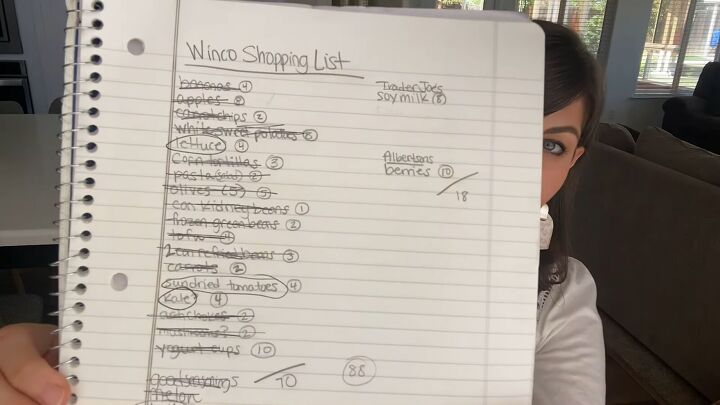 Winco Shopping List
bananas 4
apples 2
carrot chips 2
white sweet potatoes 5
lettuce 4
corn tortillas 3
pasta 2
olives (5) 5
can kidney beans 1
frozen green beans 2
tofu
2 can refried beans 3
carrots 2
sundried tomatoes 4
kale? 4
artichokes 2
mushrooms? 2
yogurt cups 10
70
88
Trader Joes
soy milk 8
Albertsons
berries 10
18